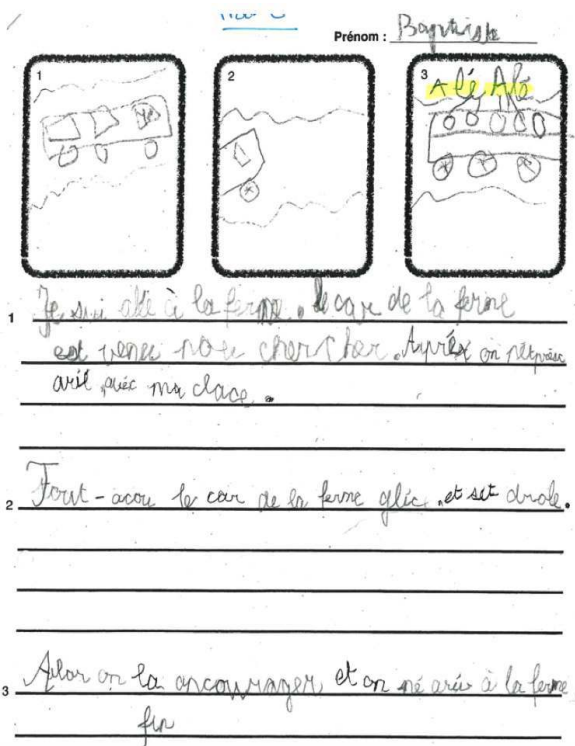 Prénom : Baptiste
1
2
3
Alé Alé
1 Je sui alé à la ferme. le car de la ferme
est venu nou chercher. Apréx on
avec ma clace.
2 Tout-acou le car de la ferme glic. et set drole.
3 Alor on la ancourager et on né arie à la ferme
fin